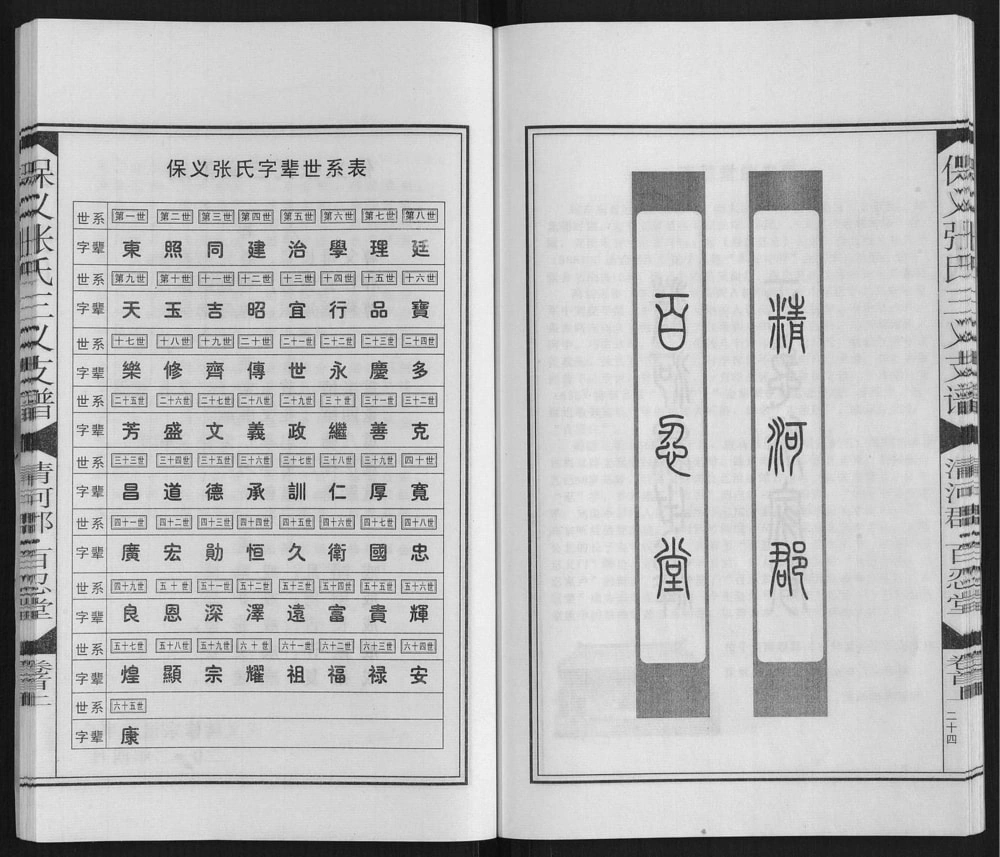 精河郡
百忍堂
保义张氏三义支谱
清河郡 百忍堂
卷首二
二十四
保义张氏字辈世系表
世系 第一世 第二世 第三世 第四世 第五世 第六世 第七世 第八世
字辈 東 照 同 建 治 學 理 廷
世系 第九世 第十世 十一世 十二世 十三世 十四世 十五世 十六世
字辈 天 玉 吉 昭 宜 行 品 寶
世系 十七世 十八世 十九世 二十世 二十一世 二十二世 二十三世 二十四世
字辈 樂 修 齊 傳 世 永 慶 多
世系 二十五世 二十六世 二十七世 二十八世 二十九世 三十世 三十一世 三十二世
字辈 芳 盛 文 義 政 繼 善 克
世系 三十三世 三十四世 三十五世 三十六世 三十七世 三十八世 三十九世 四十世
字辈 昌 道 德 承 訓 仁 厚 寬
世系 四十一世 四十二世 四十三世 四十四世 四十五世 四十六世 四十七世 四十八世
字辈 廣 宏 勛 恒 久 衛 國 忠
世系 四十九世 五十世 五十一世 五十二世 五十三世 五十四世 五十五世 五十六世
字辈 良 恩 深 澤 遠 富 貴 輝
世系 五十七世 五十八世 五十九世 六十世 六十一世 六十二世 六十三世 六十四世
字辈 煌 顯 宗 耀 祖 福 禄 安
世系 六十五世
字辈 康
保义张氏三义支谱
清河郡 百忍堂
卷首二